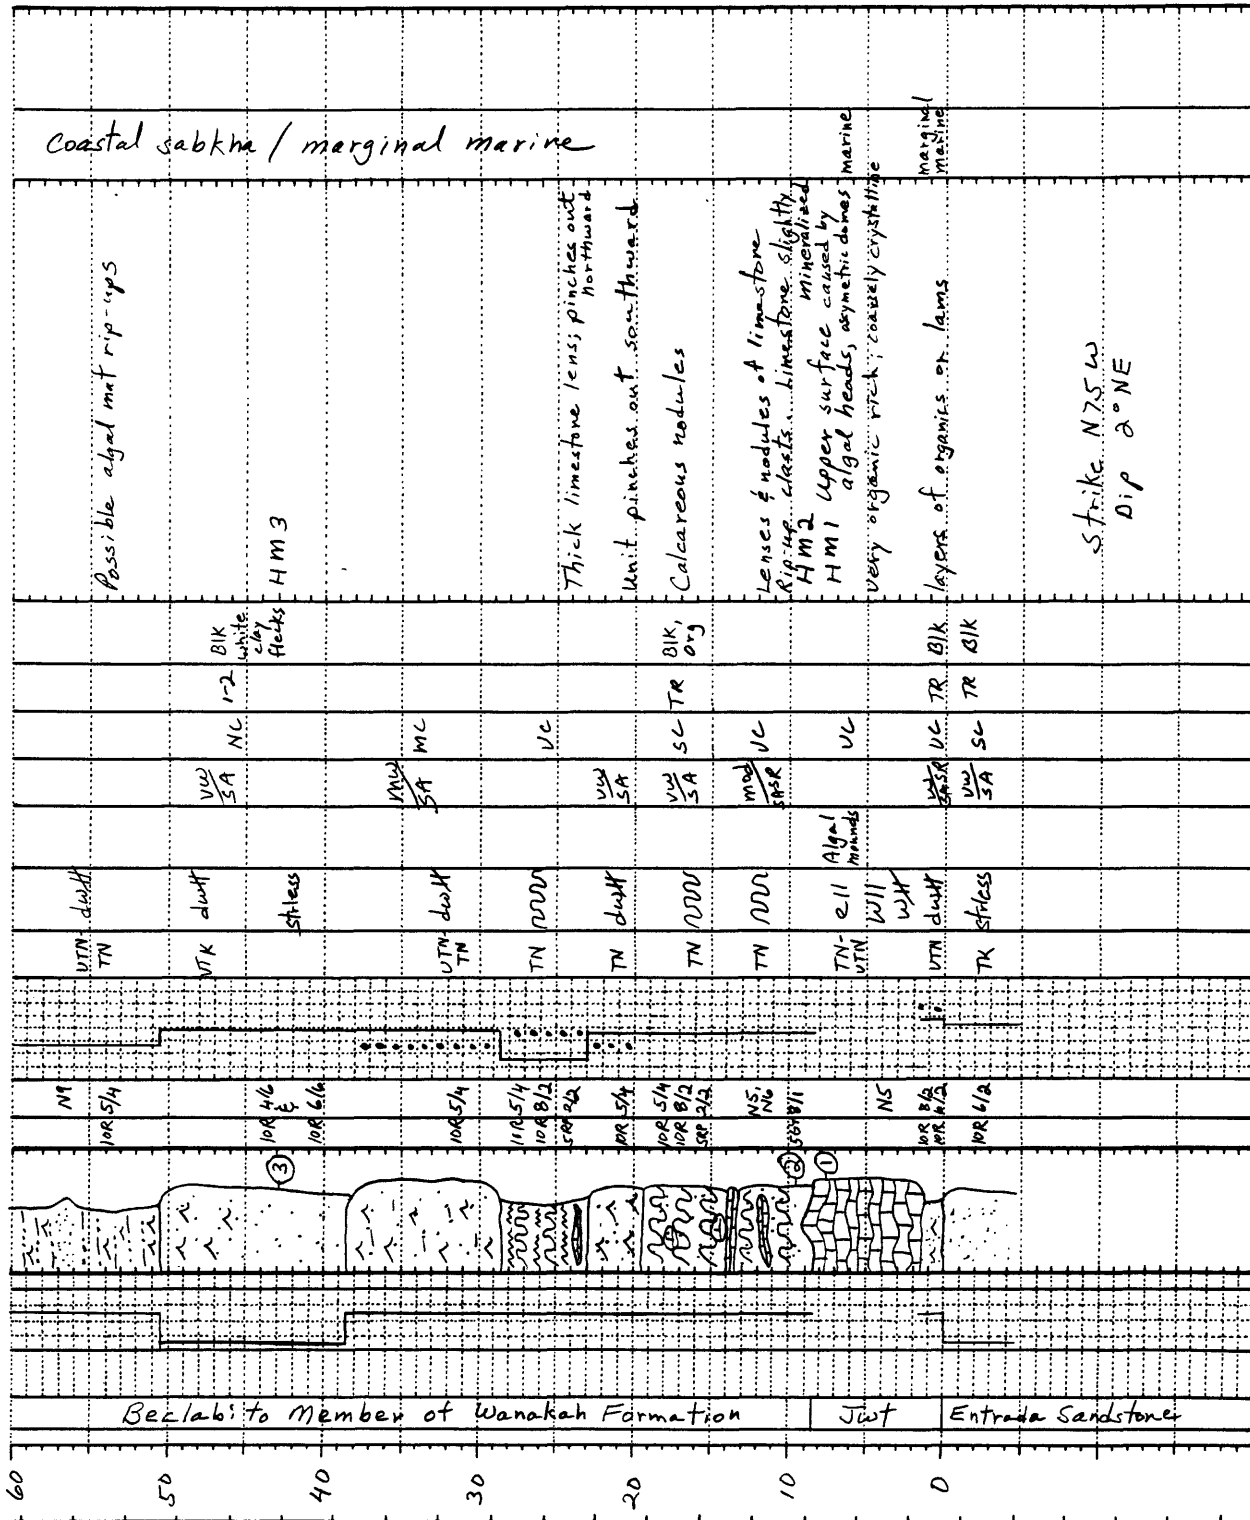 Coastal sabkha / marginal marine
marine
marginal
marine
Possible algal mat rip-ups
HM3
Thick limestone lens; pinches out
northward
Unit pinches out southward
Calcareous nodules
Lenses & nodules of limestone
Rip-up clasts. Limestone slightly
mineralized
HM2
HM1 Upper surface caused by
algal heads, asymetric domes
Very organic rich; coarsely crystalline
layers of organics on lams
Strike N75W
Dip 2° NE
Blk
white
clay
flecks
Blk,
org
Blk
Blk
1-2
TR
TR
TR
NC
MC
VC
SC
VC
VC
VC
SC
VW
SA
SA
VW
SA
VW
SA
mod
SASR
SASR
VW
SA
Algal
mounds
dwtt
dwtt
strless
dwtt
dwtt
ell
Wll
Wtt
dwtt
strless
VTN-
TN
VTK
VTN-
TN
TN
TN
TN
TN
TN-
VTN
VTN
TK
N9
10R 5/4
10R 4/6
&
10R 6/6
10R 5/4
10R 5/4
10R 8/2
5RP 2/2
10R 5/4
10R 5/4
10R 8/2
5RP 2/2
N5,
N6
N5
10R 8/2
10R 6/2
3
2
1
Beclabito Member of Wanakah Formation
Jwt
Entrada Sandstone
60
50
40
30
20
10
0